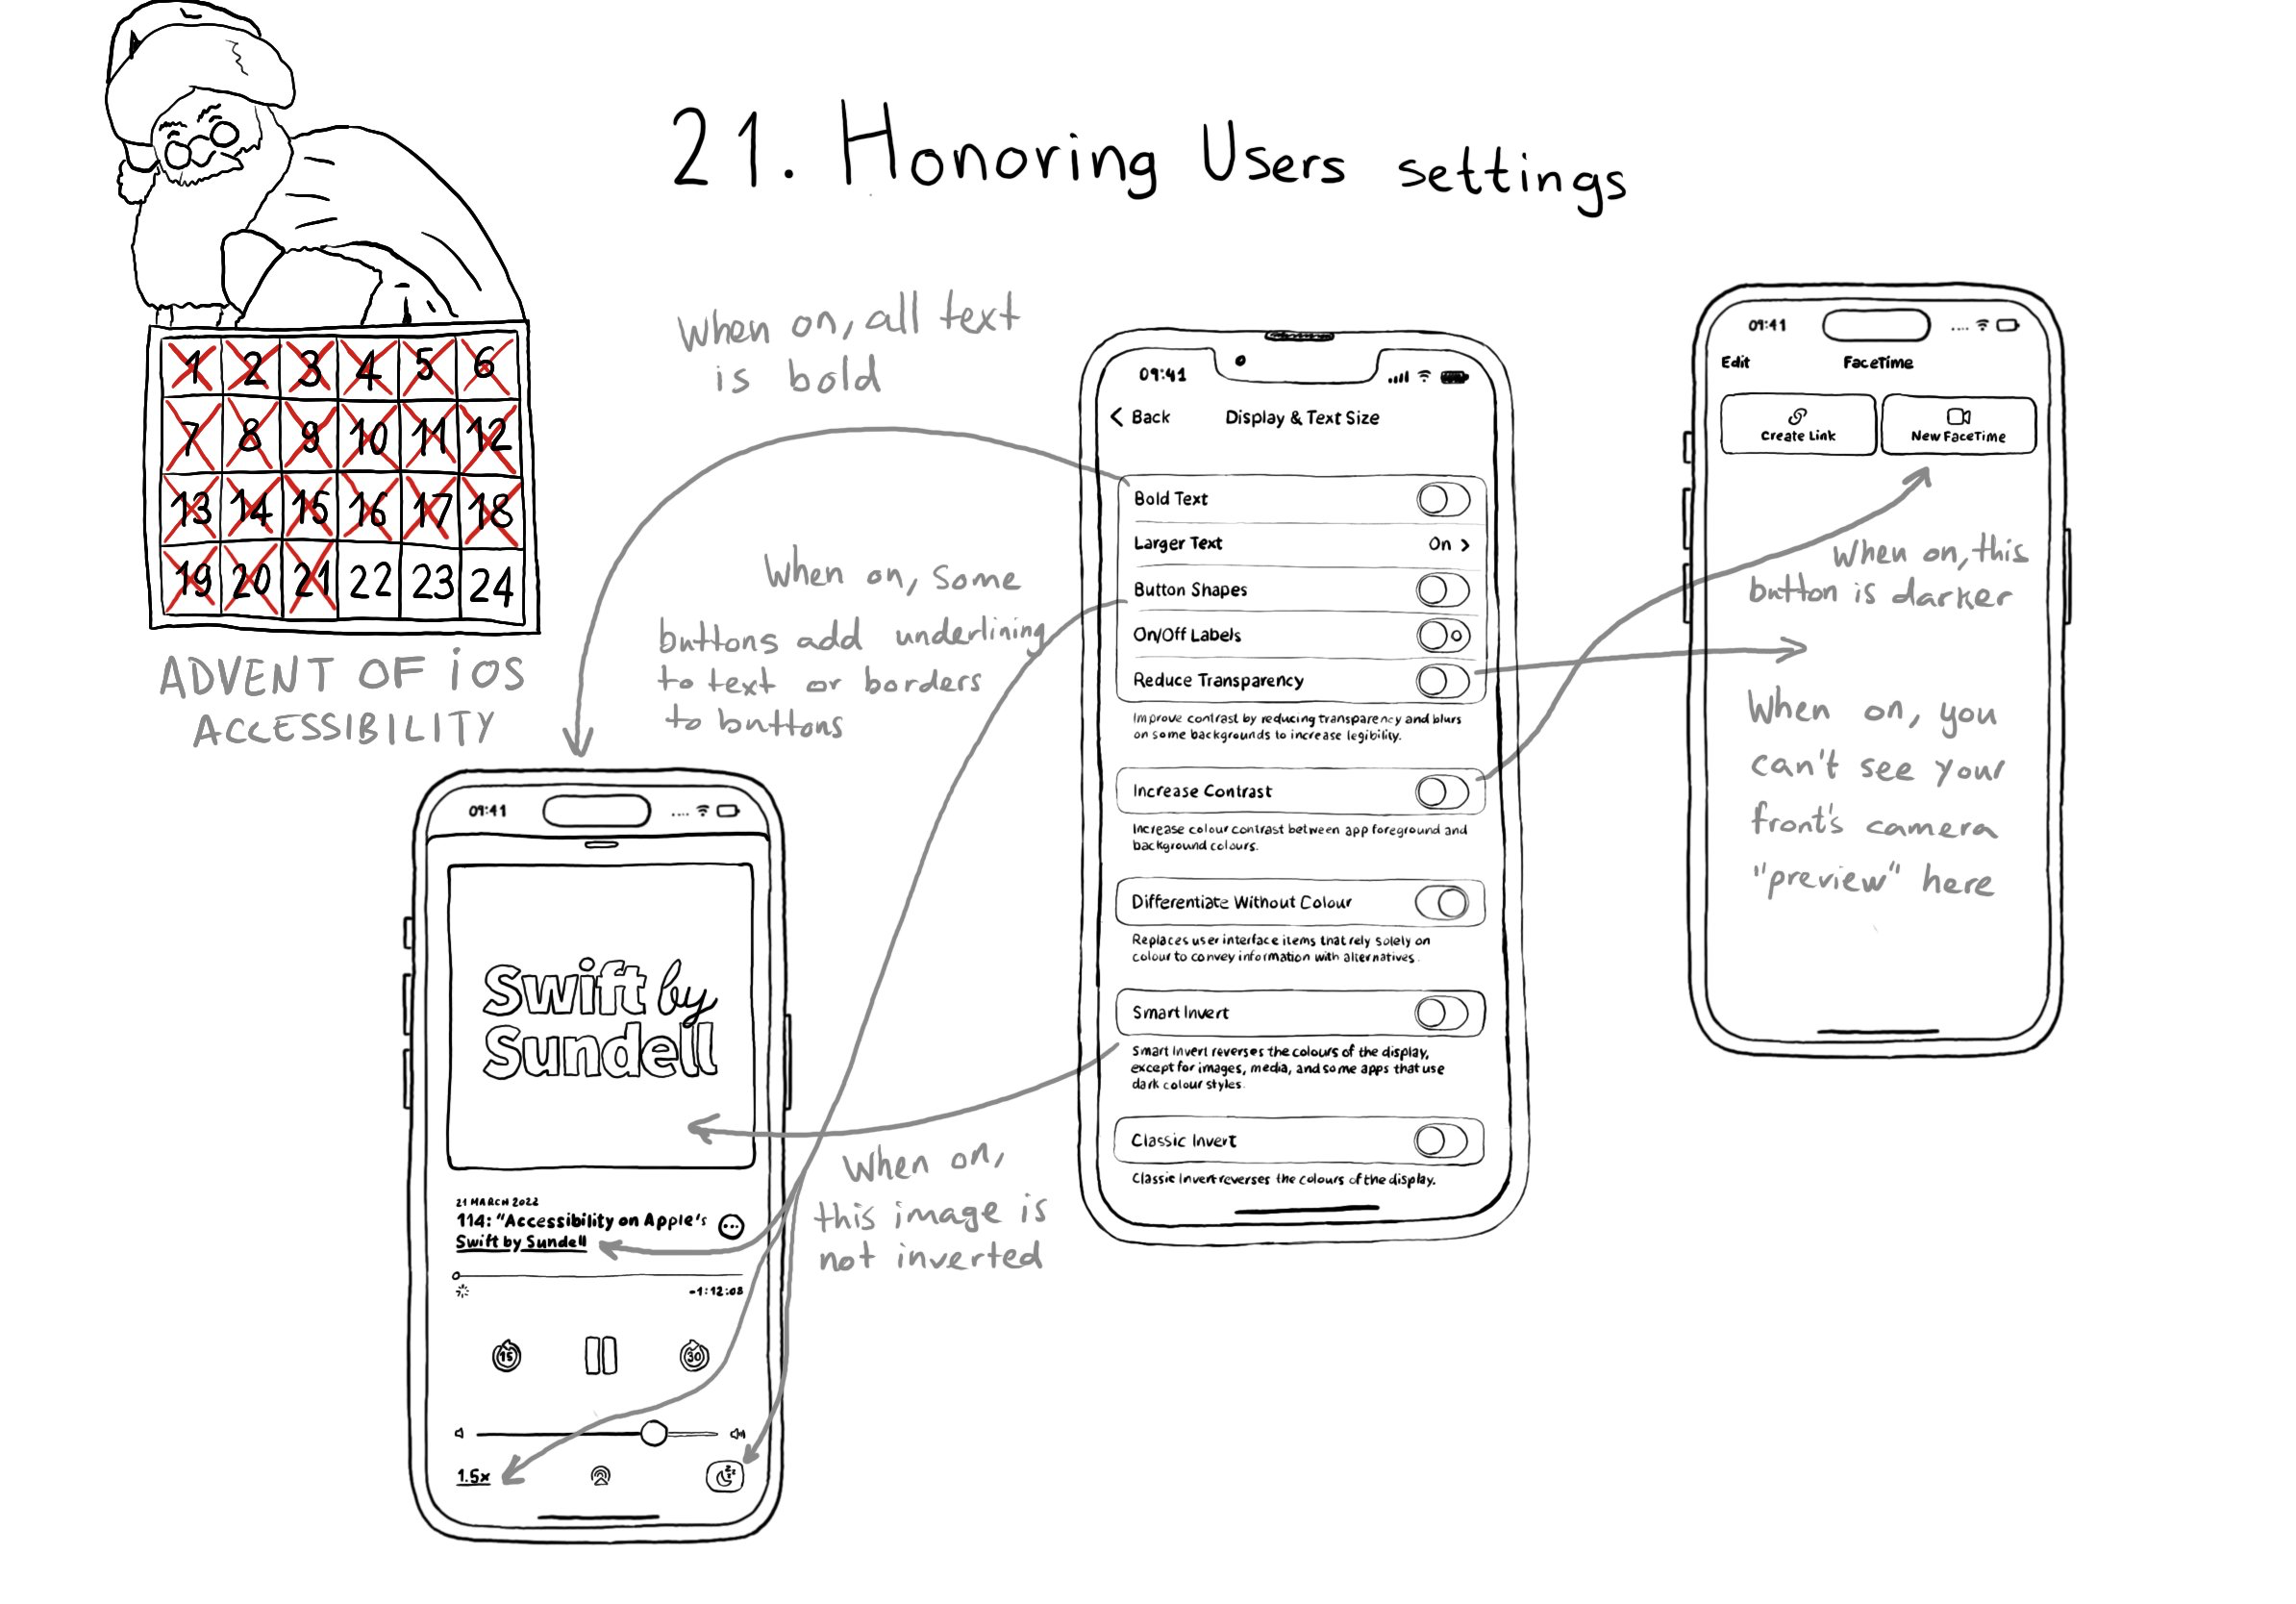 21. Honoring Users settings
1 2 3 4 5 6
7 8 9 10 11 12
13 14 15 16 17 18
19 20 21 22 23 24
ADVENT OF iOS
ACCESSIBILITY
When on, all text
is bold
When on, some
buttons add underlining
to text or borders
to buttons
09:41
Swift by
Sundell
21 MARCH 2022
114: "Accessibility on Apple's
Swift by Sundell
-1:12:08
15
30
1.5x
zzz
When on,
this image is
not inverted
09:41
Back
Display & Text Size
Bold Text
Larger Text On
Button Shapes
On/Off Labels
Reduce Transparency
Improve contrast by reducing transparency and blurs
on some backgrounds to increase legibility.
Increase Contrast
Increase colour contrast between app foreground and
background colours.
Differentiate Without Colour
Replaces user interface items that rely solely on
colour to convey information with alternatives.
Smart Invert
Smart Invert reverses the colours of the display,
except for images, media, and some apps that use
dark colour styles.
Classic Invert
Classic Invert reverses the colours of the display.
09:41
Edit FaceTime
Create Link
New FaceTime
When on, this
button is darker
When on, you
can't see your
front's camera
"preview" here